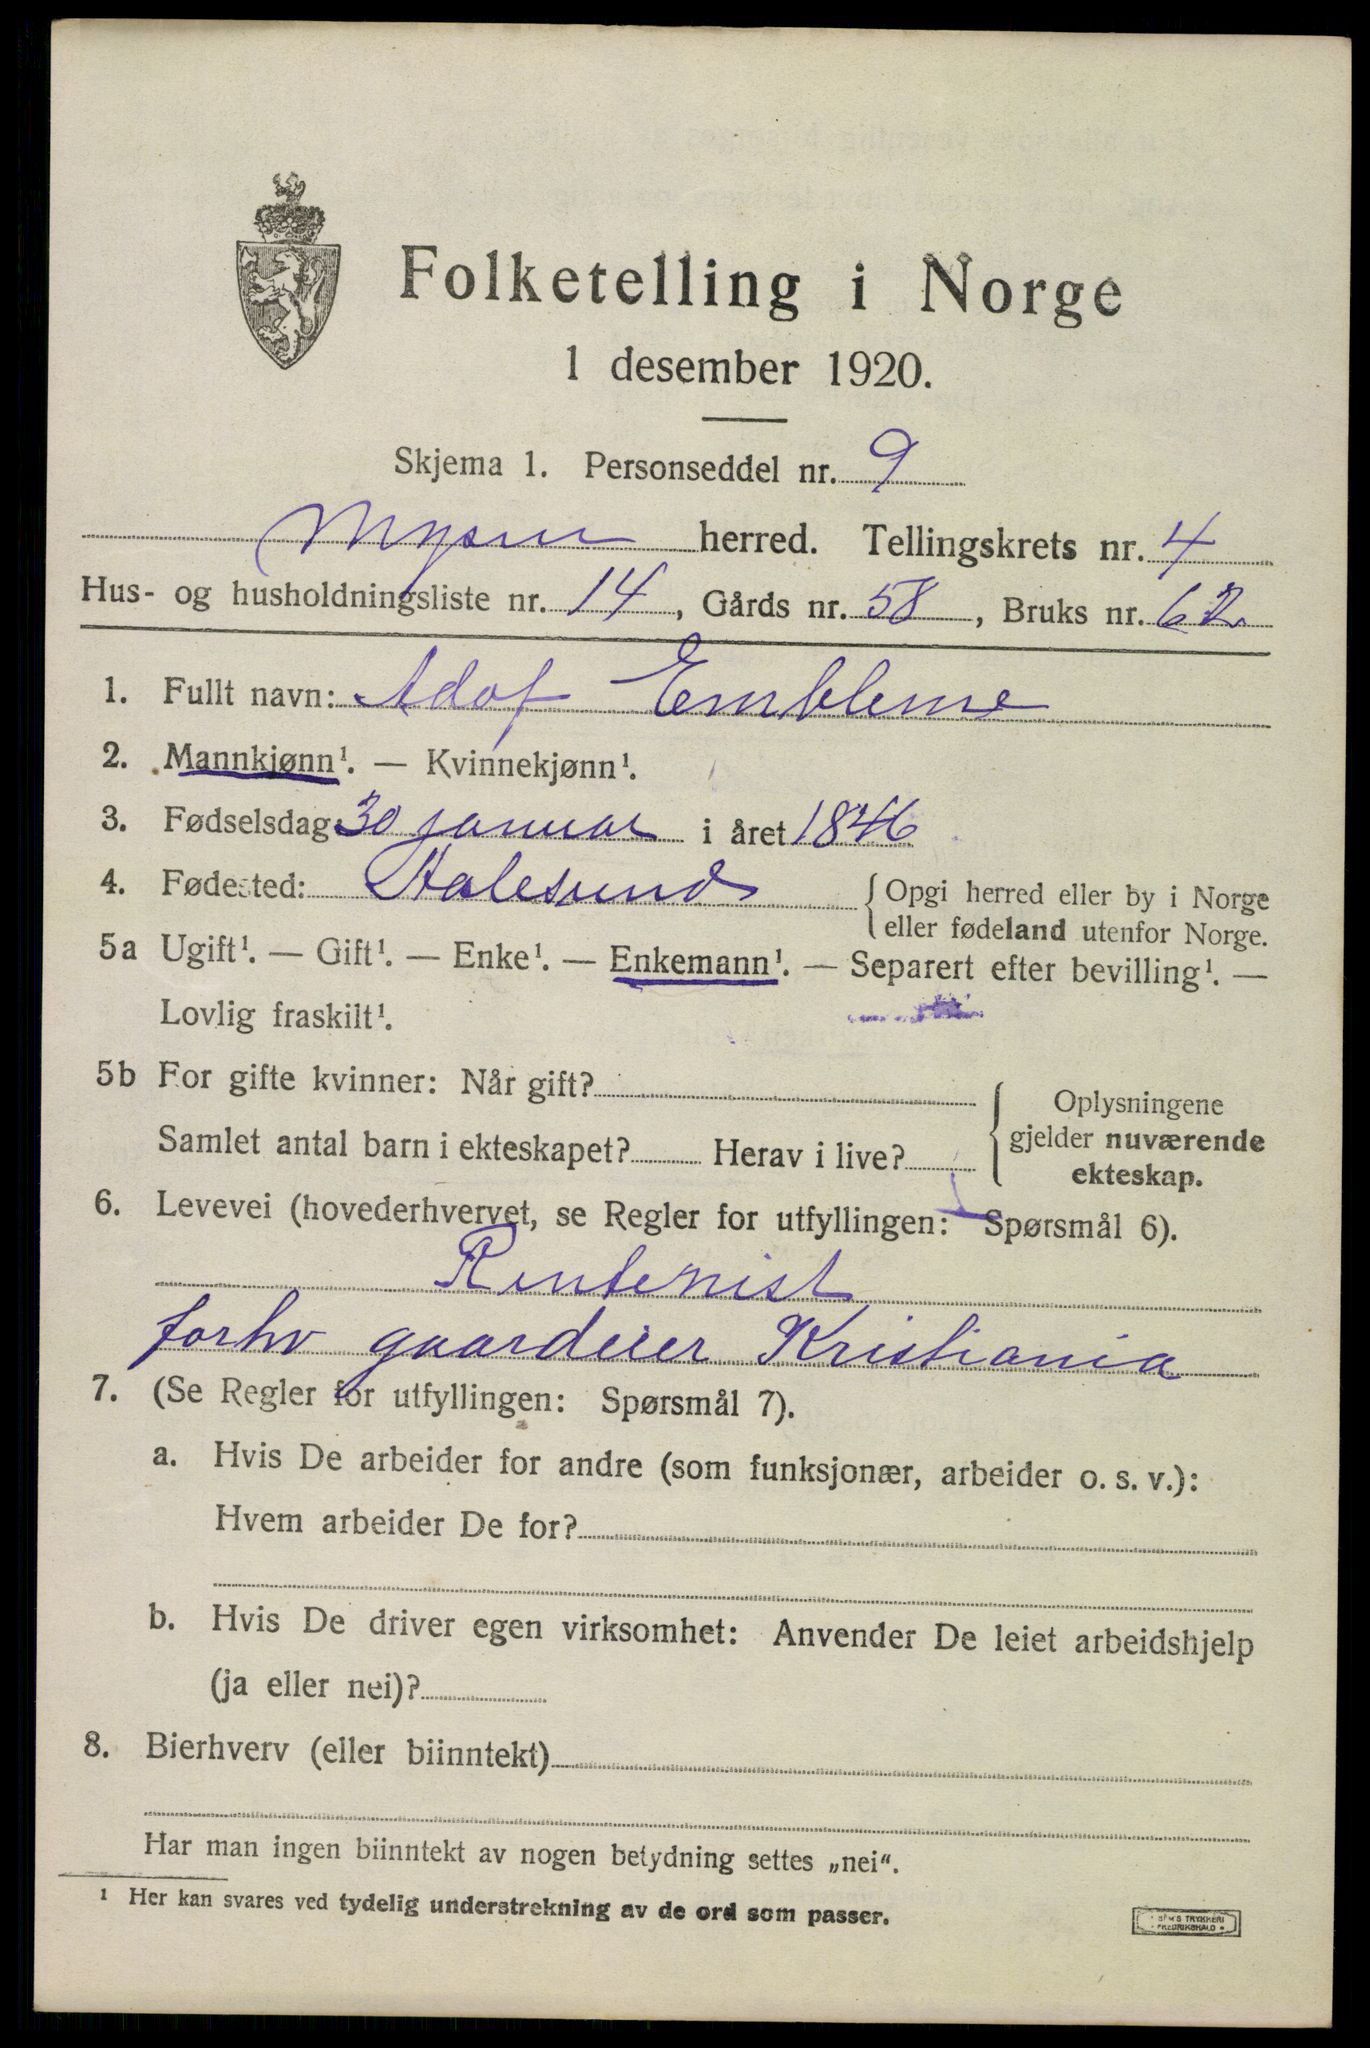 Folketelling i Norge
1 desember 1920.
Skjema 1. Personseddel nr. 9
Mysen herred. Tellingskrets nr. 4
Hus- og husholdningsliste nr. 14, Gårds nr. 58, Bruks nr. 62
1. Fullt navn: Adof Embleme
2. Mannkjønn¹. — Kvinnekjønn¹.
3. Fødselsdag 30 januar i året 1846
4. Fødested: Aalesund { Opgi herred eller by i Norge
eller fødeland utenfor Norge.
5a Ugift¹. — Gift¹. — Enke¹. — Enkemann¹. — Separert efter bevilling¹. —
Lovlig fraskilt¹.
5b For gifte kvinner: Når gift?
Samlet antal barn i ekteskapet? Herav i live?
Oplysningene
gjelder nuværende
ekteskap.
6. Levevei (hovederhvervet, se Regler for utfyllingen: Spørsmål 6).
Rentenist
forhv gaardeier Kristiania
7. (Se Regler for utfyllingen: Spørsmål 7).
a. Hvis De arbeider for andre (som funksjonær, arbeider o. s. v.):
Hvem arbeider De for?
b. Hvis De driver egen virksomhet: Anvender De leiet arbeidshjelp
(ja eller nei)?
8. Bierhverv (eller biinntekt)
Har man ingen biinntekt av nogen betydning settes „nei".
¹ Her kan svares ved tydelig understrekning av de ord som passer.
TRYKKERI
FREDRIKSHALD